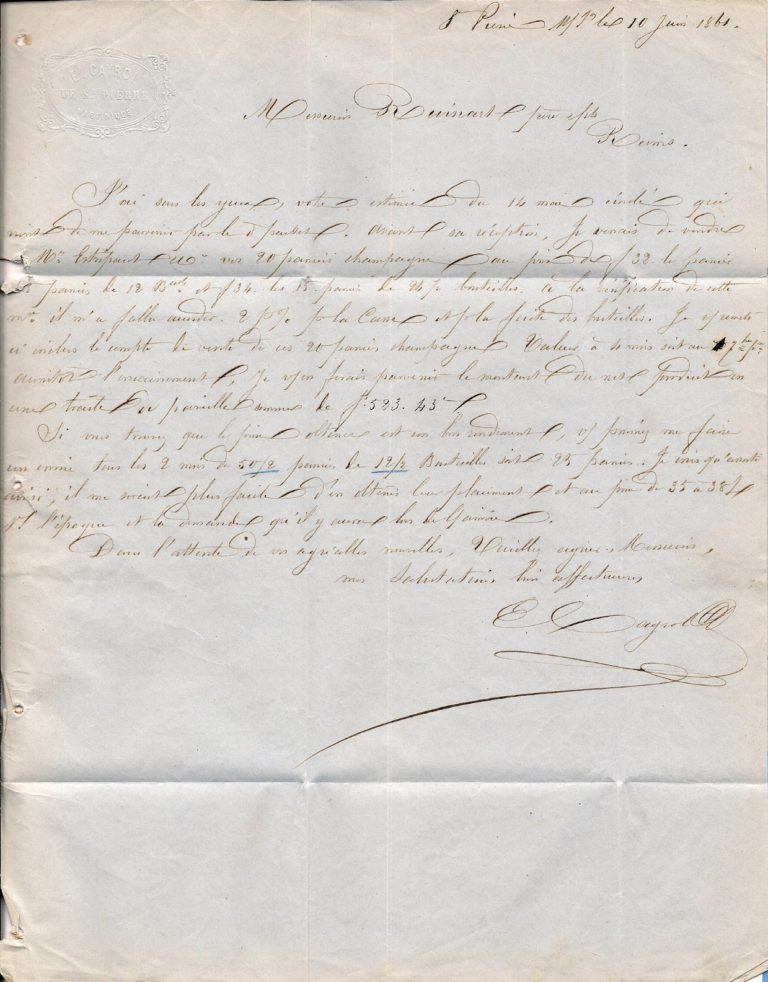 St Pierre M/que le 10 Juin 1861.
E. CAYROL
DE St PIERRE
MARTINIQUE
Messieurs Ruinart père & fils
Reims.
J'ai sous les yeux, votre estimée du 14 mai écoulé qui
vient de me parvenir par le dt paquet. Avant sa réception, Je venais de vendre
à Mr & Co vos 20 paniers champagne au prix de f 32 le panier
paniers de 12 Bles et f 34. les 15. paniers de 24/2 bouteilles. à la vérification de cette
mse il m'a fallu accorder 2 p% pr la Casse & pr la perte des bouteilles. Je vs remets
ci inclus le compte de vente de ces 20 paniers champagne Valeur à 4 mois soit au 7
aussitôt l'encaissement, Je vs en ferais parvenir le montant du net produit en
une traite de pareille somme de f. 523. 45
Si vous trouvez que le prix obtenu est un bon rendement, vs pourriez me faire
un envoi tous les 2 mois de 50/2 paniers de 12/2 Bouteilles soit 25 paniers. Je crois qu'avant
ainsi, il me serait plus facile d'en obtenir leur placement et au prix de 35 à 38 f
st l'époque et la demande qu'il y aura lors de l'arrivée.
Dans l'attente de vos agréables nouvelles, Veuillez agréer, Messieurs,
mes Salutations bien affectueuses
E. Cayrol